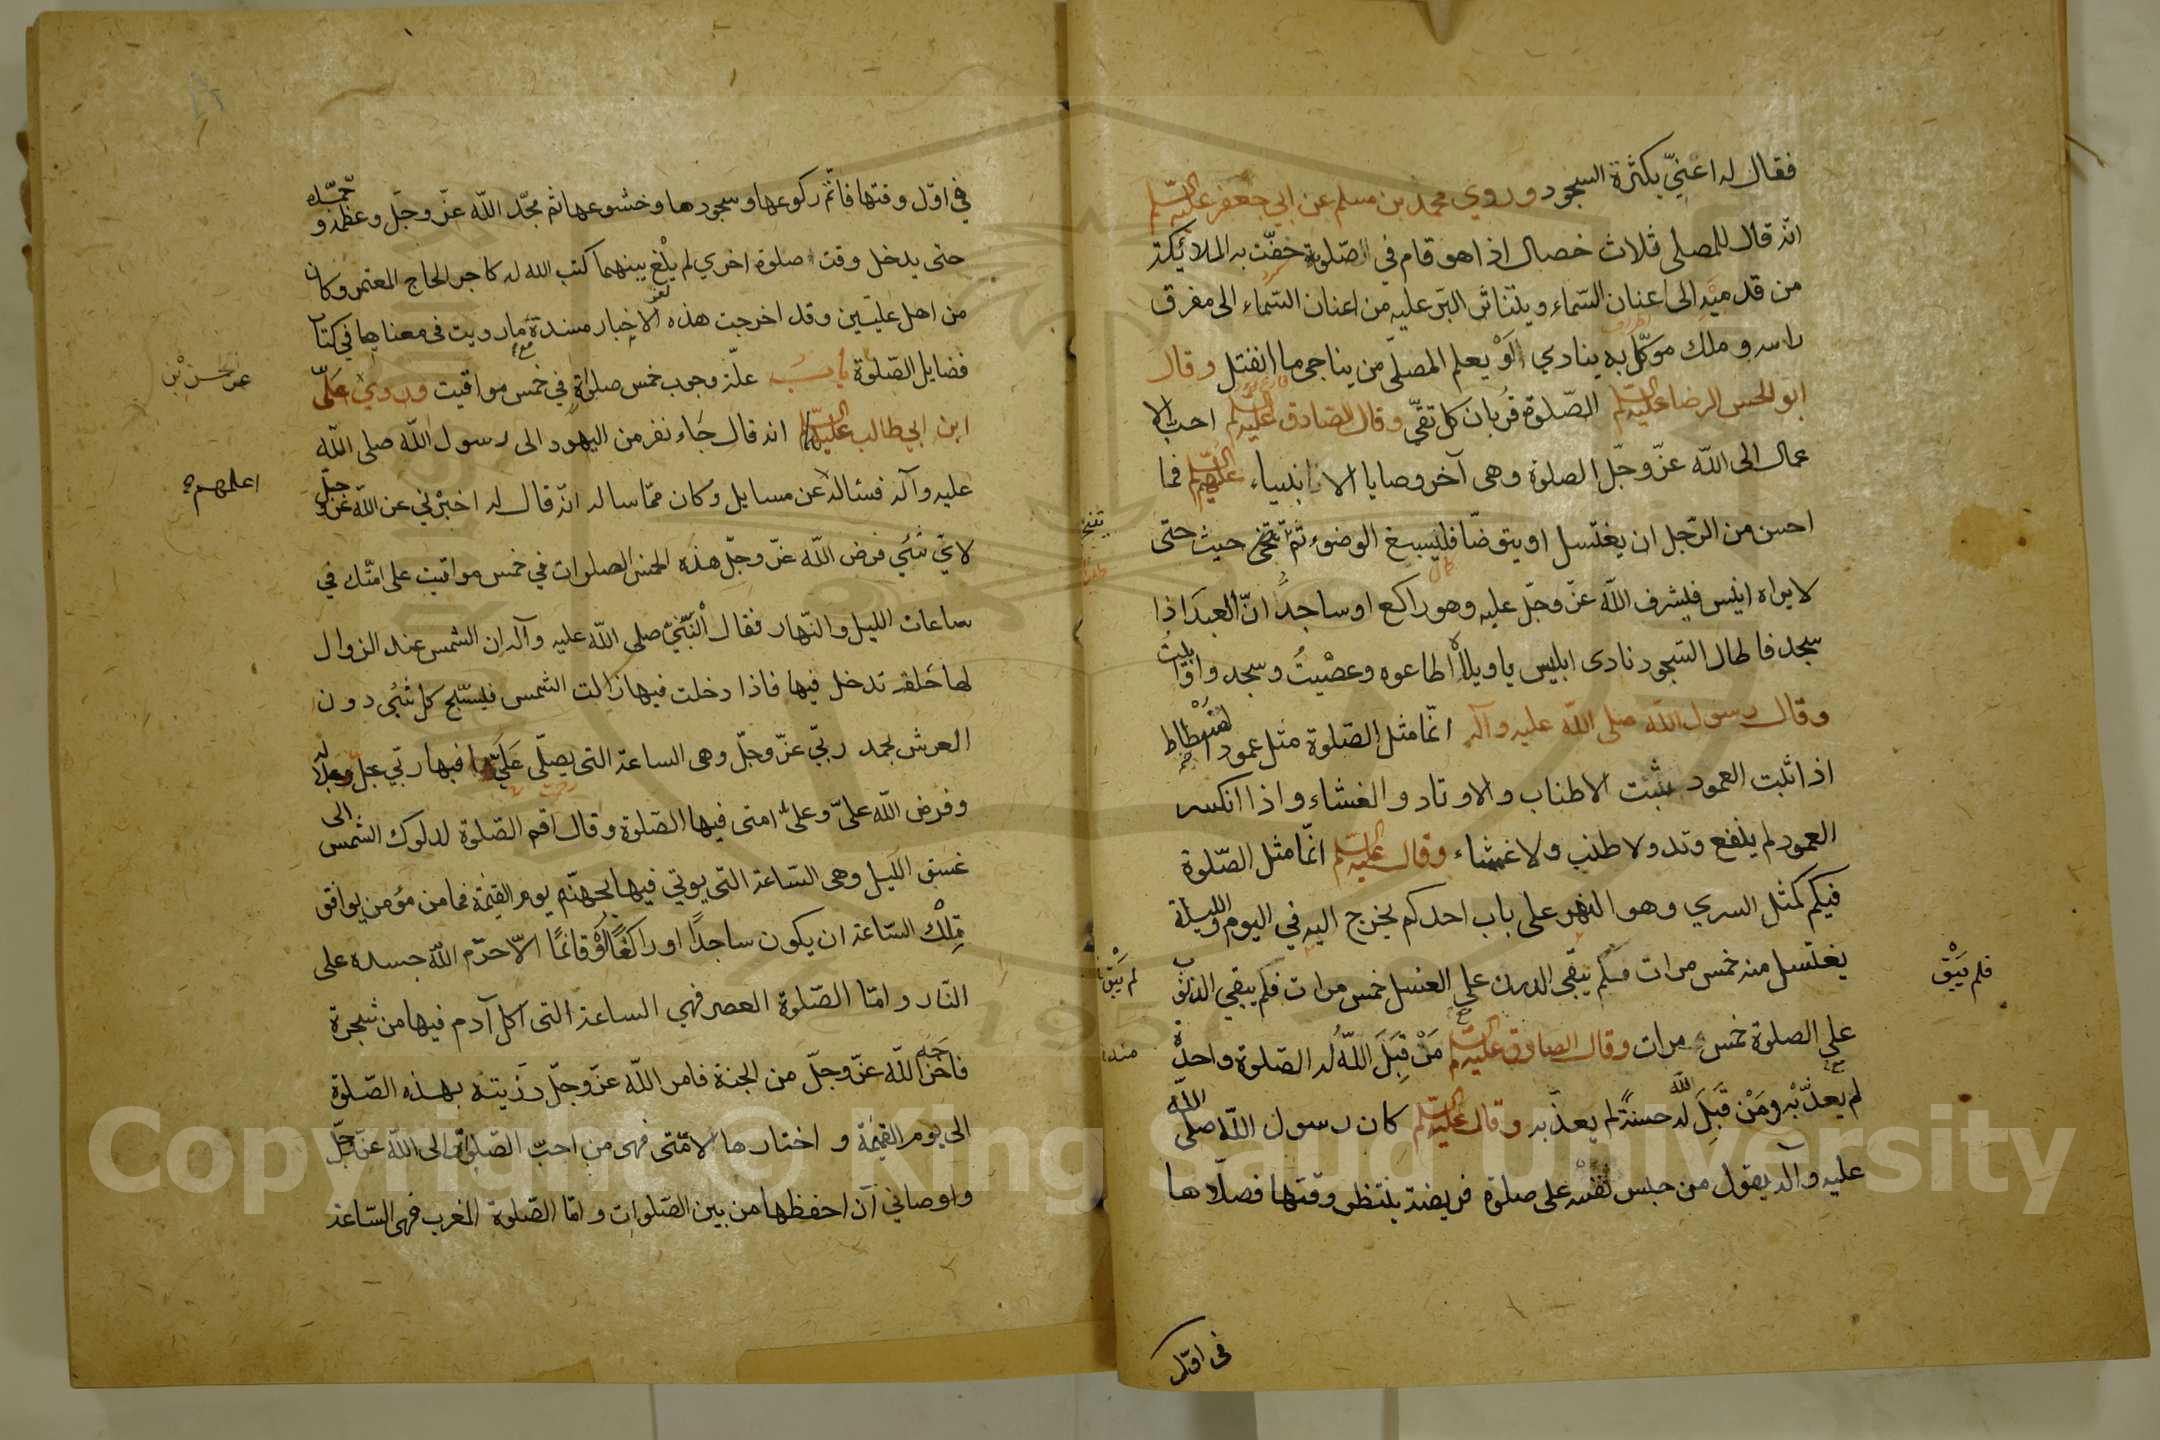 فقال له اعنّي بكثرة السجود وروي محمد بن مسلم عن ابي جعفر عليه السلم
انه قال للمصلي ثلاث خصال اذا هو قام في الصّلوة حفّت به الملائكة
من قدميه الى اعنان السّماء ويتناثر البرّ عليه من اعنان السّماء الى مفرق
راسه وملك موكّل به ينادي لَوْ يعلم المصلّي من يناجي ما انفتل وقال
ابو الحسن الرضا عليه السلم الصّلوة قربان كل تقيّ وقال الصادق عليه السلم احبّ الا
عمال الى اللّه عزّ وجلّ الصلوة وهى آخر وصايا الانبياء عليهم السلم فما
احسن من الرّجل ان يغتسل او يتوضّا فليسبغ الوضوء ثمّ يتنحّى حيث حتى
لا يراه ابليس فيشرف اللّه عزّ وجلّ عليه وهو راكع او ساجد انّ العبد اذا
سجد فاطال السّجود نادى ابليس يا ويلاْ اطاعوه وعصْيتُ وسجدوا وابيتُ
وقال رسول اللّه صلى اللّه عليه وآله انّما مثل الصّلوة مثل عمود الفسْطاط
اذا ثبت العمود ثبت الاطناب والاوتاد والغشاء واذا انكسر
العمود لم ينفع وتد ولا طنب ولا غشاء وقال عليه السلم انّما مثل الصّلوة
فيكم كمثل السري وهو النهر على باب احدكم يخرج اليه في اليوم والليلة
يغتسل منه خمس مرات فلم يبقى الدرن على الغسل خمس مرات فلم يبقي الذنوب
على الصلوة خمس مرات وقال الصادق عليه السلم مَنْ قِبَلَ اللّهُ له الصّلوة واحدة
لم يعذّبْه ومَنْ قَبِلَ اللّه له حسنةً لم يعذّبه وقال عليه السلم كان رسول اللّه صلى اللّه
عليه وآله يقول من حبس نفْسه على صلوة فريضة ينتظر وقتها فصلّاها
في اوّل
تنح
فلم يَبْق
لم يَبْق
منه
في اوّل وقتها فاتمّ ركوعها وسجودها وخشوعها ثم مجّد اللّه عزّ وجلّ وعظمه و حمّده
حتى يدخل وقت صلوة اخري لم يلْغ بينهما كتب الله له كاجر الحاج المعتمر وكان
من اهل عليّين وقد اخرجت هذه الاخبار مسندة مع ما رويت في معناها في كتاب
فضايل الصّلوة باب علّة وجوب خمس صلوات في خمس مواقيت وروي عَلّي
ابن ابي طالب عليه السلم انه قال جَاء نفر من اليهود الى رسول اللّه صلى اللّه
عليه وآله فسئاله عن مسايل وكان ممّا ساله انّه قال له اخبرْني عن اللّه عزّ وجلّ
لايّ شئي فرض اللّه عزّ وجلّ هذه الخمس الصلوات في خمس مواقيت على امّتك في
ساعات الليل والنّهار فقال النّبّي صلى اللّه عليه وآله ان الشمس عند الزوال
لها حَلقة تدخل فيها فاذا دخلت فيها زالت الشمس فيسبّح كل شئي دون
العرش بحمد ربّي عزّ وجلّ وهى الساعة التي يصلّى عَلَيّ فيها ربّي جل جلاله
وفرض اللّه عليّ وعلى امتى فيها الصّلوة وقال اقم الصّلوة لدلوك الشمس الى
غسق الليل وهى السّاعة التى يوتي فيها بجهنّم يوم القيٰمة فما من مؤمن يوافق
تِلْك السّاعة ان يكون ساجدًا او راكعًا اوْ قائمًا الاّ حرّم اللّه جسده على
النّار وامّا الصّلوة العصر فهي الساعة التى اكل آدم فيها من شجرة
فاخرجه اللّه عزّ وجلّ من الجنة فامر اللّه عزّ وجلّ ذرّيته بهذه الصّلوة
الى يوم القيٰمة واختارها لامّتى فهى من احبّ الصّلوات الى اللّه عزّ وجلّ
واوصاني ان احفظها من بين الصّلوات وامّا الصّلوة المغرب فهى السّاعة
عن الحسن بْن
اعلمهم
Copyright © King Saud University
1957